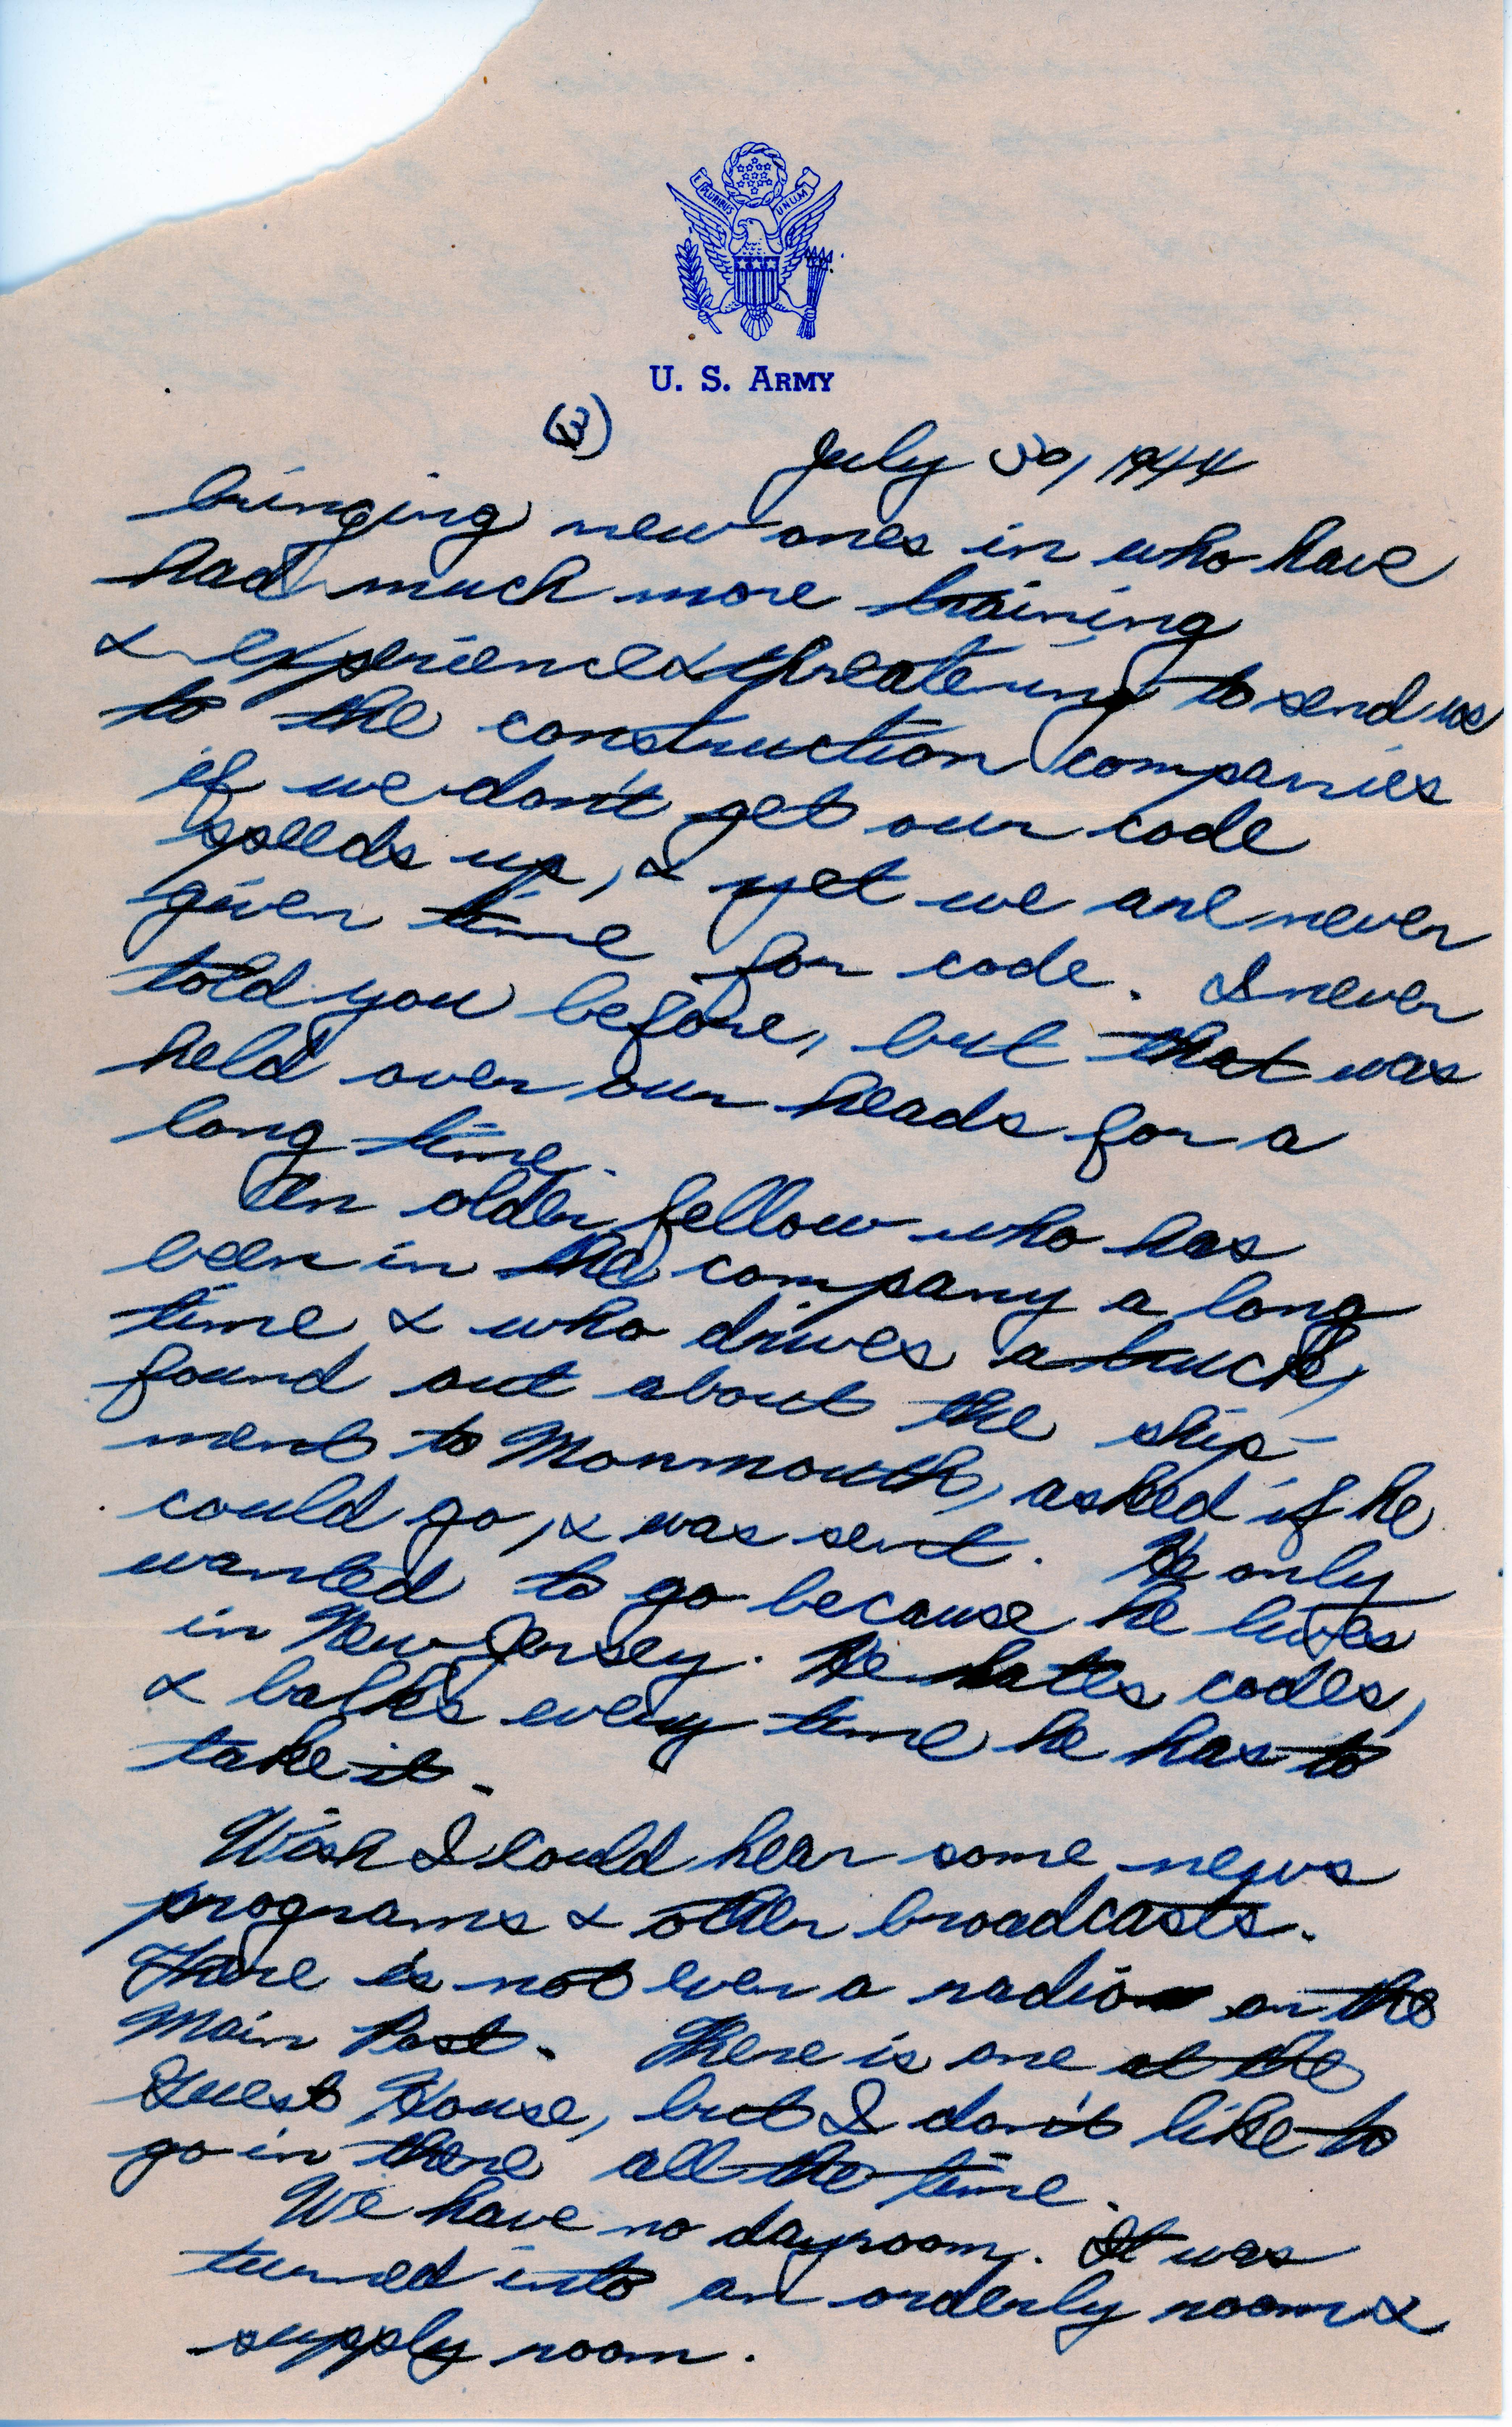 E PLURIBUS UNUM
U. S. ARMY
(3) July 30, 1944
bringing new ones in who have
had much more training
& experience & threatening to send us
to the construction companies
if we don't get our code
speeds up, & yet we are never
given time for code. I never
told you before, but that was
held over our heads for a
long time.
An older fellow who has
been in the company a long
time & who drives a truck,
found out about the ship-
ment to Monmouth, asked if he
could go, & was sent. He only
wanted to go because he lives
in New Jersey. He hates codes,
& balks every time he has to
take it.
Wish I could hear some news
programs & other broadcasts.
There is not even a radio on the
Main Post. There is one at the
Guest House, but I don't like to
go in there all the time.
We have no dayroom. It was
turned into an orderly room &
supply room.